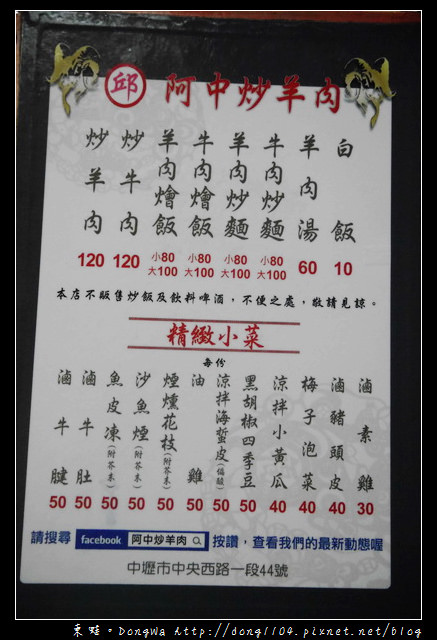 邱 阿中炒羊肉
白飯 10
羊肉湯 60
牛肉炒麵 小80 大100
羊肉炒麵 小80 大100
牛肉燴飯 小80 大100
羊肉燴飯 小80 大100
炒牛肉 120
炒羊肉 120
本店不販售炒飯及飲料啤酒，不便之處，敬請見諒。
精緻小菜
每份
滷素雞 30
滷豬頭皮 40
梅子泡菜 40
涼拌小黃瓜 40
黑胡椒四季豆 50
涼拌海蜇皮(偏酸) 50
油雞 50
煙燻花枝(附芥末) 50
沙魚煙(附芥末) 50
魚皮凍(附芥末) 50
滷牛肚 50
滷牛腱 50
請搜尋 facebook 阿中炒羊肉 按讚，查看我們的最新動態喔
中壢市中央西路一段44號
東蛙。DongWa http://dong1104.pixnet.net/blog